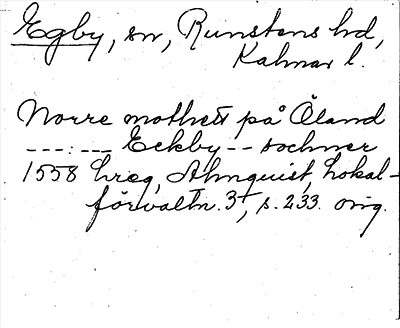 Egby, sn, Runstens hd,
Kalmar l.
Norre mothett på Öland
---:--- Eckby -- sochner
1558 hreg, Almquist, Lokal-
förvaltn. 3, s. 233. orig.